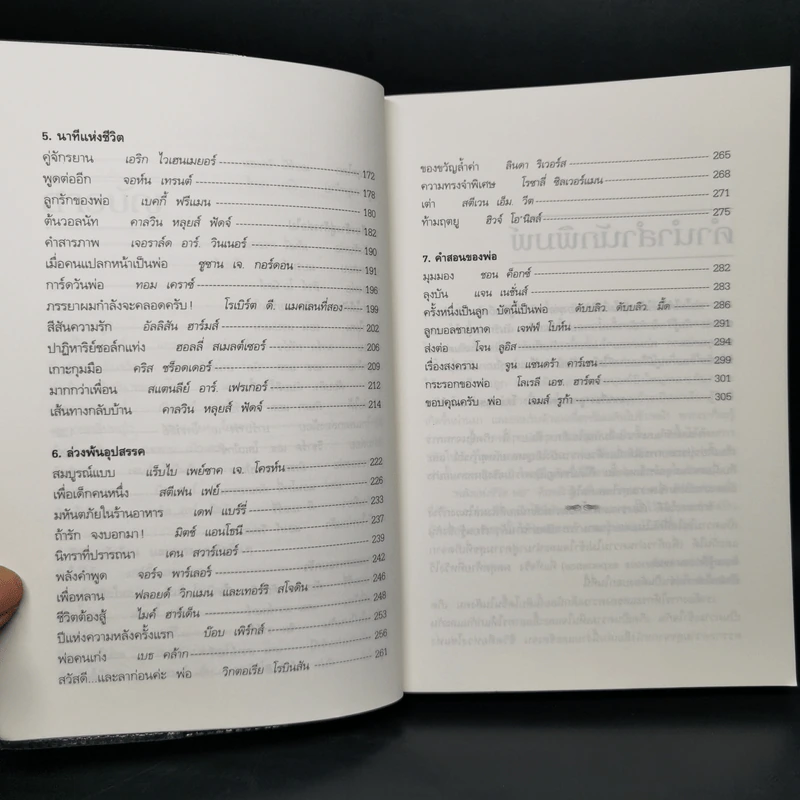 5. นาทีแห่งชีวิต
คู่จักรยาน เอริก ไวเฮนเมยอร์ 172
พูดต่ออีก จอห์น เทรนต์ 178
ลูกรักของพ่อ เบคกี้ ฟรีแมน 180
ต้นวอลนัท คาลวิน หลุยส์ ฟัดจ์ 182
คำสารภาพ เจอราล์ด อาร์. วินเนอร์ 190
เมื่อคนแปลกหน้าเป็นพ่อ ซูซาน เจ. กอร์ดอน 191
การ์ดวันพ่อ ทอม เคราซ์ 196
ภรรยาผมกำลังจะคลอดครับ! โรเบิร์ต ดี. แมคเลนที่สอง 199
สีสันความรัก อัลลิสัน ฮาร์มส์ 202
ปาฏิหาริย์ซอล์กแท่ง ฮอลลี่ สเมลต์เซอร์ 206
เกาะกุมมือ คริส ชร็อดเดอร์ 209
มากกว่าเพื่อน สแตนลีย์ อาร์. เฟรเกอร์ 212
เส้นทางกลับบ้าน คาลวิน หลุยส์ ฟัดจ์ 214
6. ล่วงพ้นอุปสรรค
สมบูรณ์แบบ แร็บไบ เพย์ซาค เจ. โครห์น 222
เพื่อเด็กคนหนึ่ง สตีเฟน เฟย์ 226
มหันตภัยในร้านอาหาร เดฟ แบร์รี่ 233
ถ้ารัก จงบอกมา! มิตซ์ แอนโธนี 237
นิทราที่ปรารถนา เคน สวาร์เนอร์ 239
พลังคำพูด จอร์จ พาร์เลอร์ 242
เพื่อหลาน ฟลอยด์ วิกแมน และเทอร์ริ สโจดิน 246
ชีวิตต้องสู้ ไมค์ ฮาร์เด็น 248
ปีแห่งความหลังครั้งแรก บ๊อบ เพิร์กส์ 253
พ่อคนเก่ง เบธ คล้าก 256
สวัสดี...และลาก่อนค่ะ พ่อ วิกตอเรีย โรบินสัน 261
ของขวัญล้ำค่า ลินดา ริเวอร์ส 265
ความทรงจำพิเศษ โรซาลี ซิลเวอร์แมน 268
เต่า สตีเวน เอ็ม. วีต 271
ท้ามฤตยู ฮิวจ์ โอ'นิลส์ 275
7. คำสอนของพ่อ
มุมมอง ชอน ค็อกซ์ 282
ลุงบัน แจน เนชั่นส์ 283
ครั้งหนึ่งเป็นลูก บัดนี้เป็นพ่อ ดับบลิว. ดับบลิว. มี้ด 286
ลูกบอลชายหาด เจฟฟ์ โบห์น 291
ส่งต่อ โจน ลูอีส 294
เรื่องสงคราม จูน แซนดร้า คาร์เชน 299
กระรอกของพ่อ โลเรลี เอช. ฮาร์ตจ์ 301
ขอบคุณครับ พ่อ เจมส์ รูก้า 305